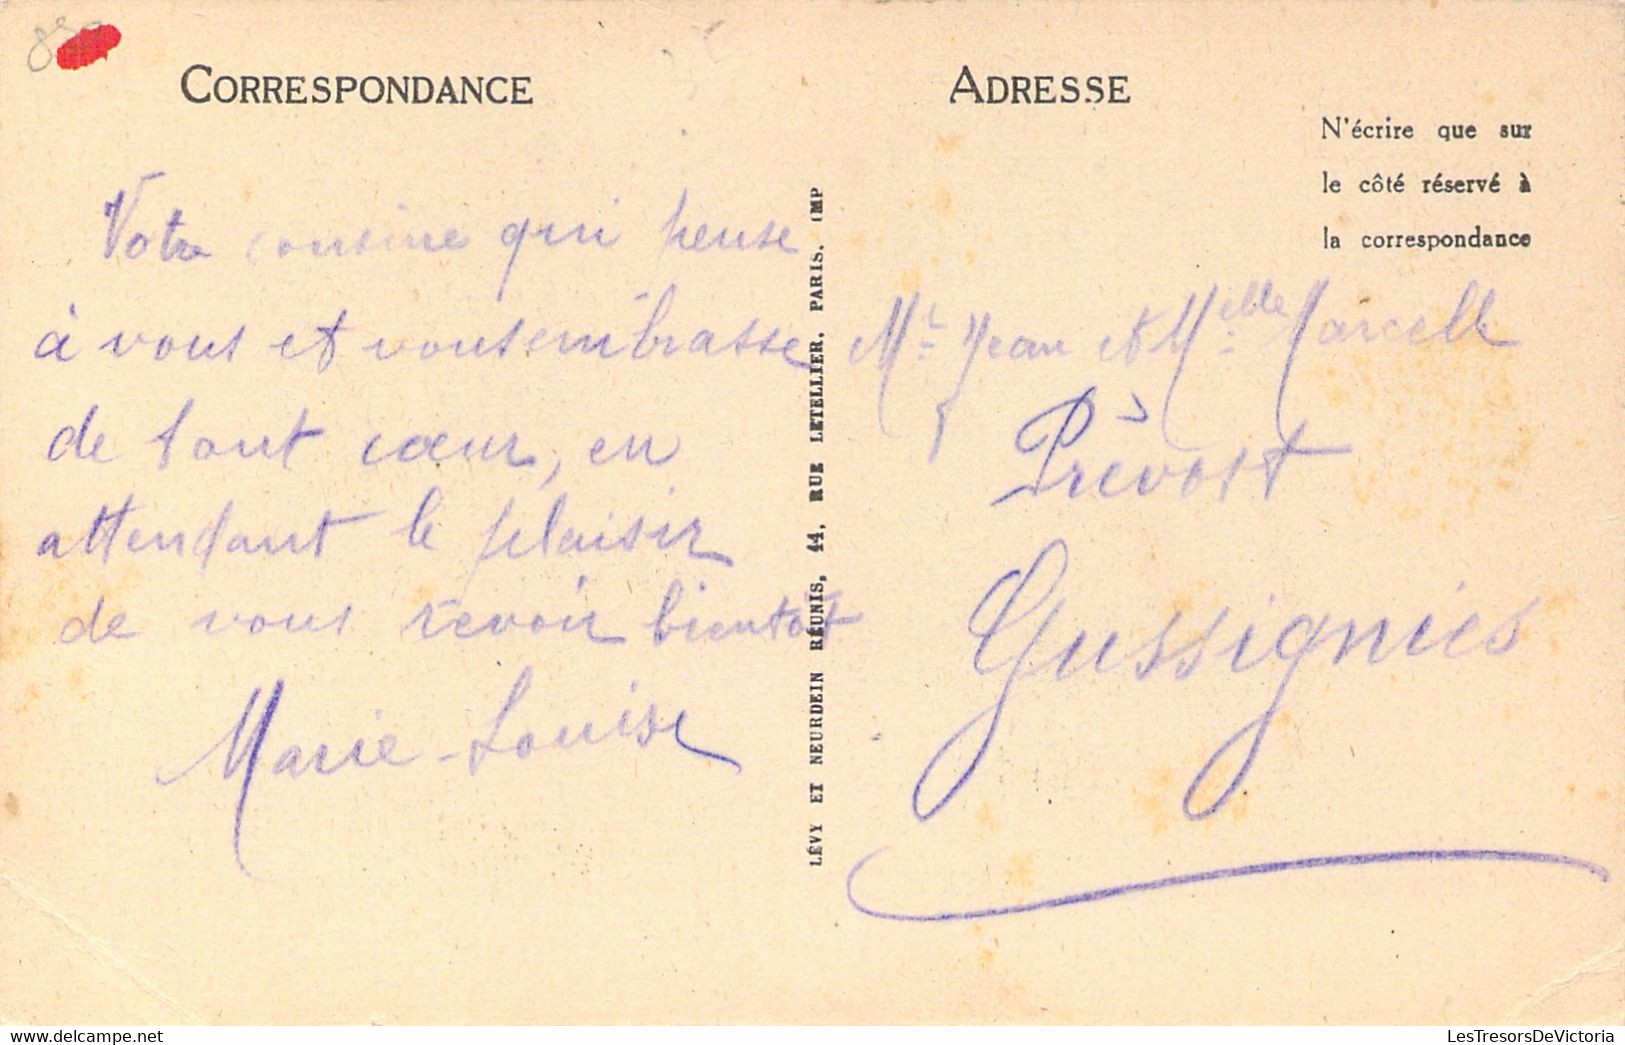 CORRESPONDANCE
Votre cousine qui pense
à vous et vous embrasse
de tout cœur, en
attendant le plaisir
de vous revoir bientôt
Marie-Louise
LÉVY ET NEURDEIN RÉUNIS, 44, RUE LETELLIER, PARIS. IMP
ADRESSE
N'écrire que sur
le côté réservé à
la correspondance
Mr Jean et Melle Marcelle
Prévost
Gussignies
LesTresorsDeVictoria